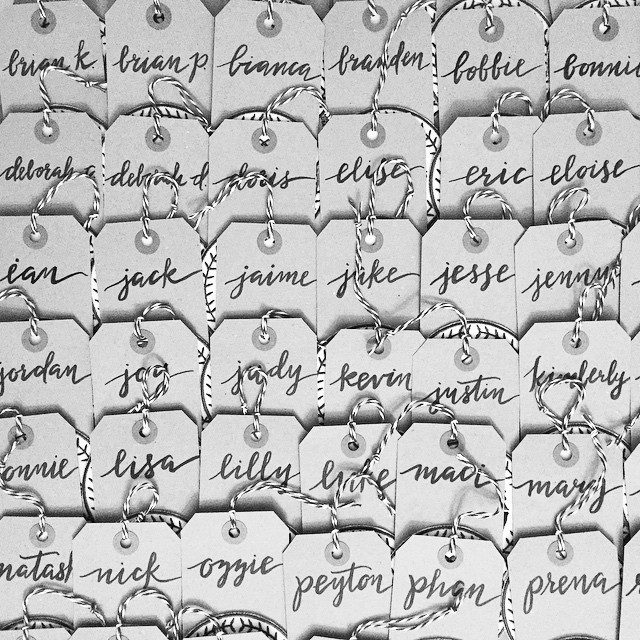 brian k.
brian p.
bianca
branden
bobbie
bonnie
deborah
deborah d.
doris
elise
eric
eloise
jack
jaime
jake
jesse
jenny
jordan
judy
kevin
justin
kimberly
onnie
lisa
lilly
maci
mary
natash
nick
ozzie
peyton
phan
prena